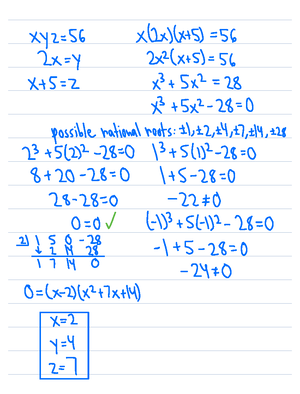 xyz=56
2x=y
x+5=z
x(2x)(x+5)=56
2x²(x+5)=56
x³+5x²=28
x³+5x²-28=0
possible rational roots: ±1, ±2, ±4, ±7, ±14, ±28
2³+5(2)²-28=0
8+20-28=0
28-28=0
0=0 ✓
1³+5(1)²-28=0
1+5-28=0
-22≠0
(-1)³+5(-1)²-28=0
-1+5-28=0
-24≠0
2| 1 5 0 -28
↓ 2 14 28
1 7 14 0
0=(x-2)(x²+7x+14)
x=2
y=4
z=7